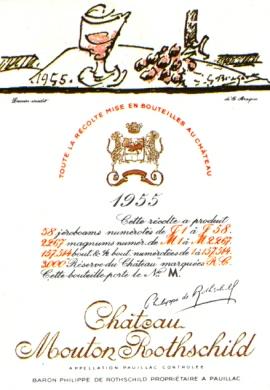 1955.
G. Braque
Dessin inédit de G. Braque
TOUTE LA RÉCOLTE MISE EN BOUTEILLES AU CHÂTEAU
1955
Cette récolte a produit
58 jéroboams numérotés de J 1 à J 58.
2267 magnums numér. de M 1 à M 2267.
157.314 bout. & ½ bout. numérotées de 1 à 157.314.
2000 Réserve du Château marquées R.C.
Cette bouteille porte le No M.
Philippe de Rothschild
Château
Mouton Rothschild
APPELLATION PAUILLAC CONTRÔLÉE
BARON PHILIPPE DE ROTHSCHILD PROPRIÉTAIRE A PAUILLAC